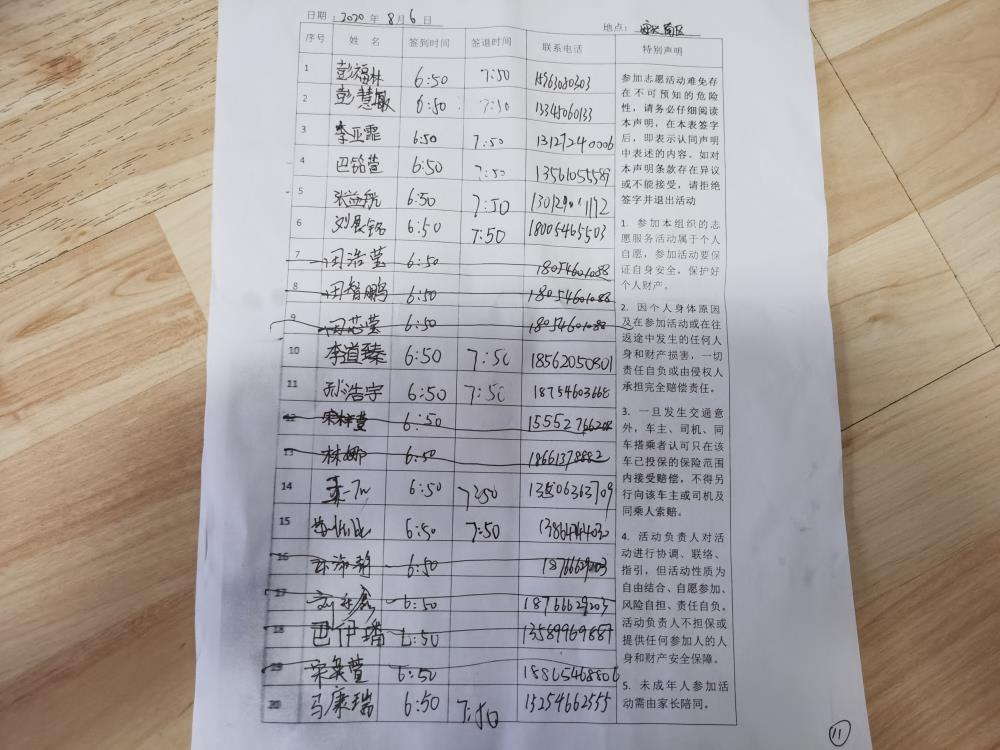 日期：2020年8月6日
地点：
序号 姓 名 签到时间 签退时间 联系电话 特别声明
1 彭福林 6:50 7:50
2 彭慧敏 6:50 7:50 13345060133
3 李亚霏 6:50 7:50 13127240006
4 巴铭萱 6:50 7:50 13561055589
5 6:50 7:50
6 刘展铭 6:50 7:50 18005465503
7 田浩莹 6:50 18054601088
8 田智鹏 6:50 18054601088
9 田芯莹 6:50 18054601088
10 李道臻 6:50 7:50 18562050801
11 孙浩宇 6:50 7:50 18754603668
12 6:50
13 林娜 6:50 18661378882
14 6:50 7:50
15 6:50 7:50
16 6:50
17 6:50 18766629203
18 巴伊璠 6:50 13589969887
19 6:50
20 马康瑞 6:50 7:50 15254662555
参加志愿活动难免存
在不可预知的危险
性，请务必仔细阅读
本声明，在本表签字
后，即表示认同声明
中表述的内容。如对
本声明条款存在异议
或不能接受，请拒绝
签字并退出活动
1. 参加本组织的志
愿服务活动属于个人
自愿，参加活动要保
证自身安全，保护好
个人财产。
2. 因个人身体原因
及在参加活动或在往
返途中发生的任何人
身和财产损害，一切
责任自负或由侵权人
承担完全赔偿责任。
3. 一旦发生交通意
外，车主、司机、同
车搭乘者认可只在该
车已投保的保险范围
内接受赔偿，不得另
行向该车主或司机及
同乘人索赔。
4. 活动负责人对活
动进行协调、联络、
指引，但活动性质为
自由结合、自愿参加、
风险自担、责任自负。
活动负责人不担保或
提供任何参加人的人
身和财产安全保障。
5. 未成年人参加活
动需由家长陪同。
11